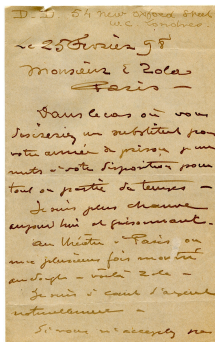 54 New Oxford Street
W.C. Londres
Le 25 Février 98
Monsieur E Zola
Paris
Dans le cas où vous
désireriez un substitut pour
votre année de prison, je me
mets à votre disposition pour
tout ou partie du temps
Je suis plus chauve
aujourd'hui et grisonnant
au théâtre à Paris on
m'a plusieurs fois montré
au doigt - voilà Zola -
Je suis à court d'argent
naturellement -
Si vous n'acceptez pas